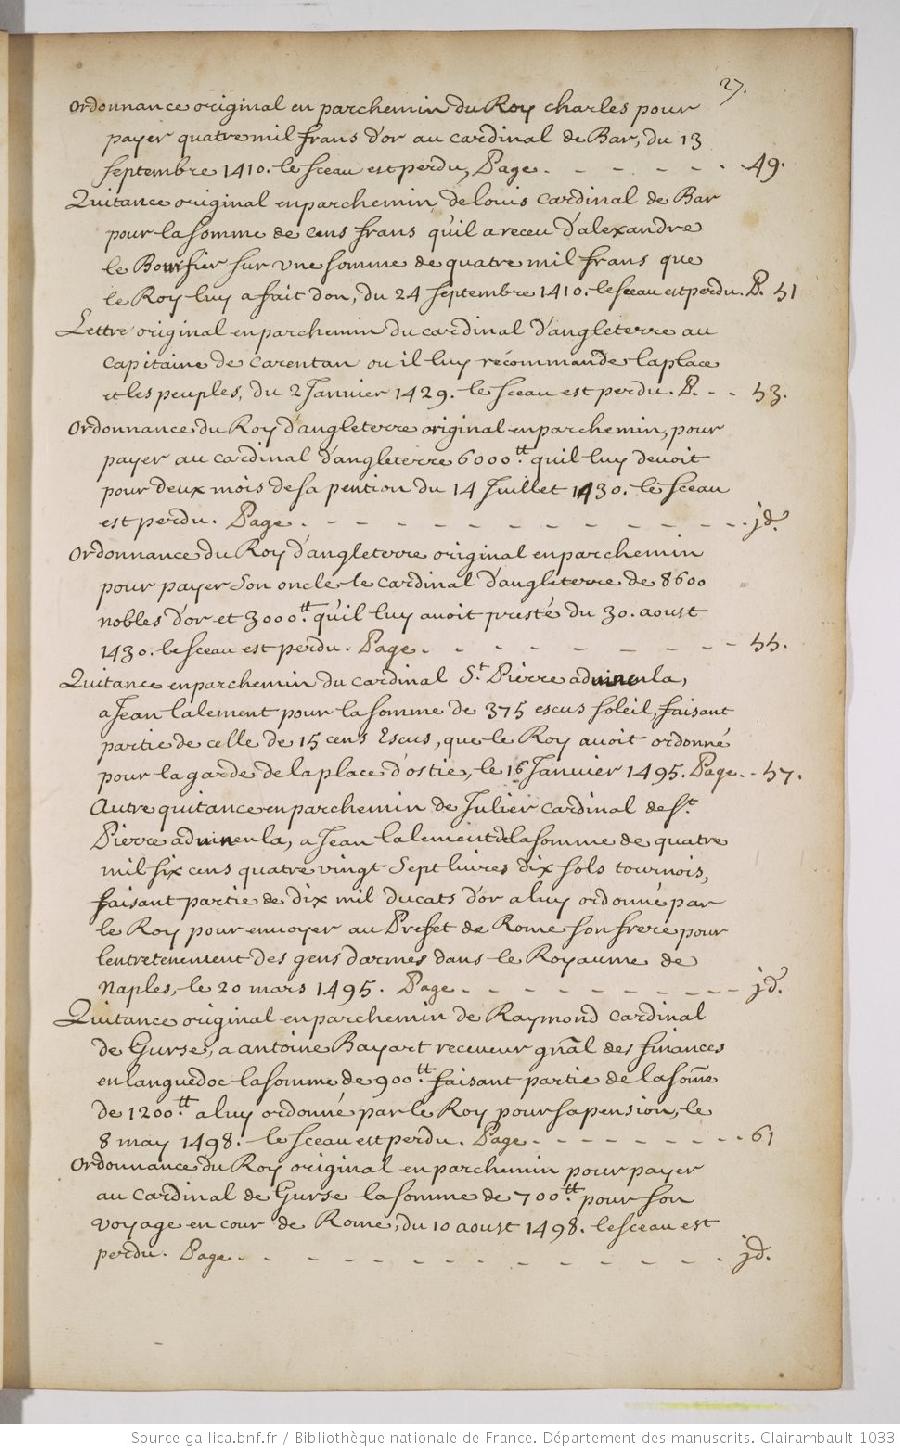 27.
Ordonnance original en parchemin du Roy charles pour
payer quatre mil frans d'or au cardinal de Bar, du 13
septembre 1410. le sceau est perdu, Page . - - - - - . 49.
Quitance original en parchemin de louis cardinal de Bar
pour la somme de cens frans qu'il a receu d'alexandre
le Boursier sur une somme de quatre mil frans que
le Roy luy a fait don, du 24 septembre 1410. le sceau est perdu. P. 51
Lettre original en parchemin du cardinal d'angleterre au
capitaine de carentan ou il luy récommande la place
et les peuples, du 2 Janvier 1429. le sceau est perdu. P. - - 53.
Ordonnance du Roy d'angleterre original en parchemin, pour
payer au cardinal d'angleterre 6000.tt qu'il luy devoit
pour deux mois de sa pention du 14 Juillet 1430. le sceau
est perdu. Page . - - - - - - - - - - - - - jd.
Ordonnance du Roy d'angleterre original en parchemin
pour payer son oncle le cardinal d'angleterre de 8600
nobles d'or et 3000.tt qu'il luy avoit presté du 30. aoust
1430. le sceau est perdu. Page . - - - - - - - - 55.
Quitance en parchemin du cardinal St. Pierre advincula,
a Jean lalement pour la somme de 375 escus soleil, faisant
partie de celle de 15 cens Escus, que le Roy avoit ordonné
pour la garde de la place d'ostie, le 16 Janvier 1495. Page . - 57.
Autre quitance en parchemin de Julier cardinal de St.
Pierre advincula, a Jean lalement de la somme de quatre
mil six cens quatre vingt sept livres dix sols tournois,
faisant partie de dix mil ducats d'or a luy ordonné par
le Roy pour envoyer au Prefet de Rome son frere pour
l'entretenement des gens d'armes dans le Royaume de
Naples, le 20 mars 1495. Page . - - - - - - - - - - jd.
Quitance original en parchemin de Raymond cardinal
de Gurse, a antoine Bayart receveur gñal des finances
en languedoc la somme de 900.tt faisant partie de la som̃e
de 1200.tt a luy ordonné par le Roy pour sa pension, le
8 may 1498. le sceau est perdu. Page . - - - - - - - - 61
Ordonnance du Roy original en parchemin pour payer
au cardinal de Gurse la somme de 700.tt pour son
voyage en cour de Rome, du 10 aoust 1498. le sceau est
perdu. Page . - - - - - - - - - - - - - jd.
Source gallica.bnf.fr / Bibliothèque nationale de France. Département des manuscrits. Clairambault 1033